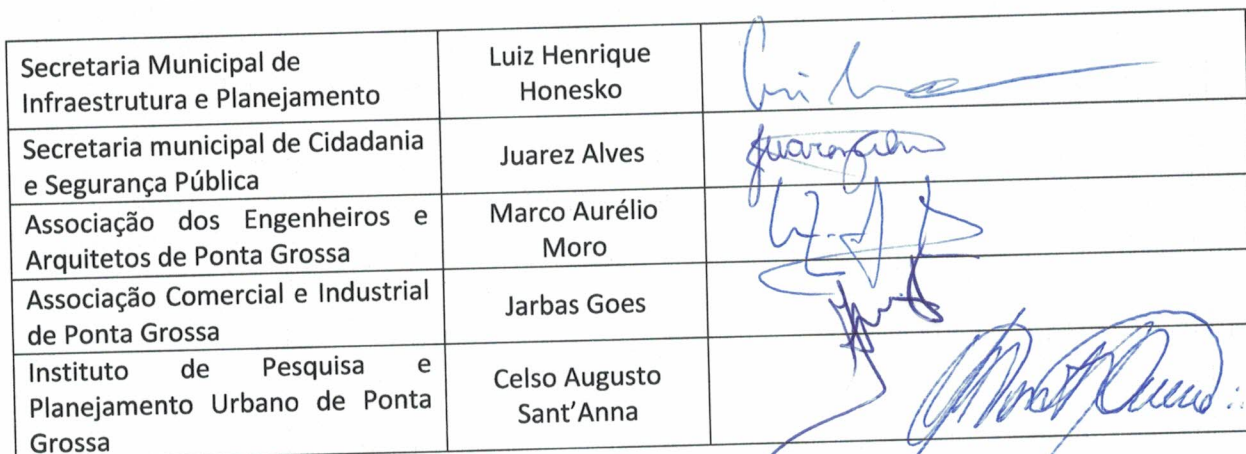 Secretaria Municipal de
Infraestrutura e Planejamento
Luiz Henrique
Honesko
Secretaria municipal de Cidadania
e Segurança Pública
Juarez Alves
Associação dos Engenheiros e
Arquitetos de Ponta Grossa
Marco Aurélio
Moro
Associação Comercial e Industrial
de Ponta Grossa
Jarbas Goes
Instituto de Pesquisa e
Planejamento Urbano de Ponta
Grossa
Celso Augusto
Sant’Anna